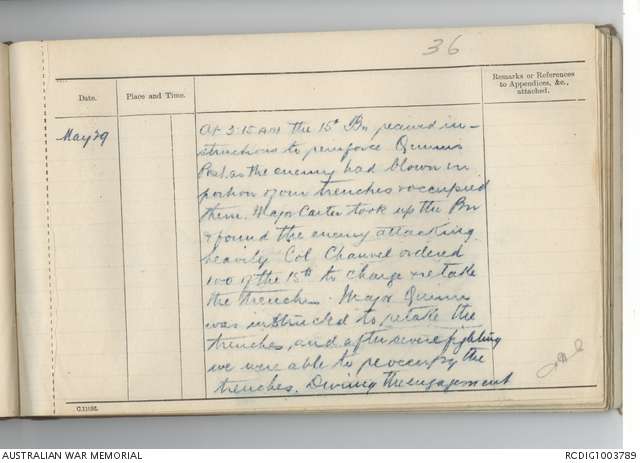 36
Date.
Place and Time.
Remarks or References
to Appendices, &c.,
attached.
May 29
At 3.15 AM the 15th Bn received in-
structions to reinforce Quinns
Post as the enemy had blown in
portion of our trenches & occupied
them. Major Carter took up the Bn
& found the enemy attacking
heavily Col Chauvel ordered
100 of the 15th to charge & retake
the trenches. Major Quinn
was instructed to retake the
trenches, and after severe fighting
we were able to reoccupy the
trenches. During the engagement
AUSTRALIAN WAR MEMORIAL
RCDIG1003789